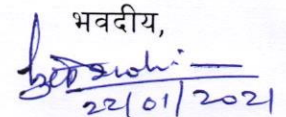 भवदीय,
22/01/2021